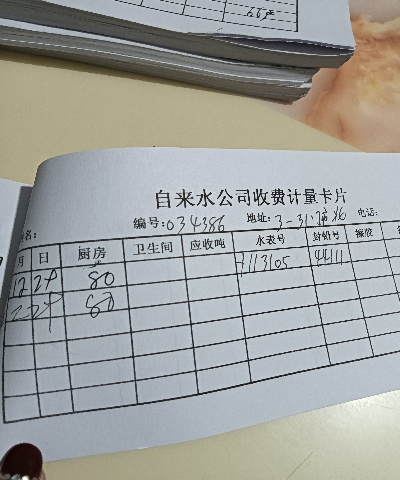 自来水公司收费计量卡片
名: 编号:034386 地址:3-31 电话:
月 日 厨房 卫生间 应收吨 水表号 封铅号
12 29 80 1113105 4411
80